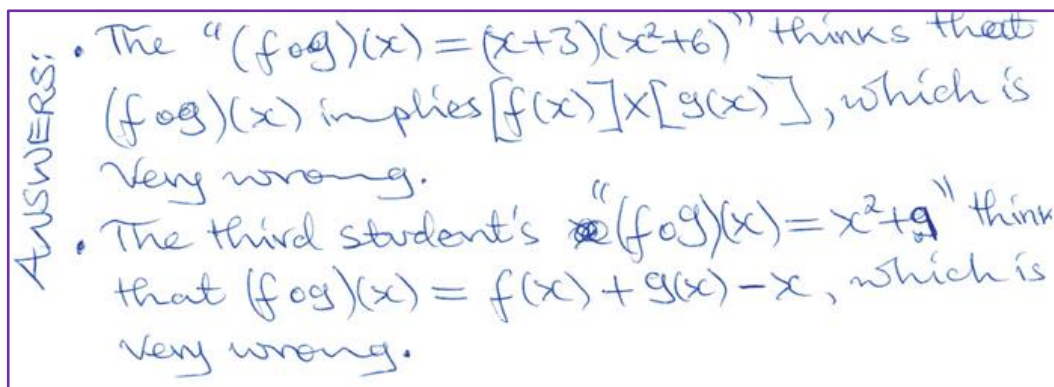 ANSWERS:
• The "(fog)(x) = (x+3)(x²+6)" thinks that
(fog)(x) implies [f(x)]X[g(x)], which is
very wrong.
• The third student's "(fog)(x) = x²+9" think
that (fog)(x) = f(x) + g(x) - x, which is
very wrong.